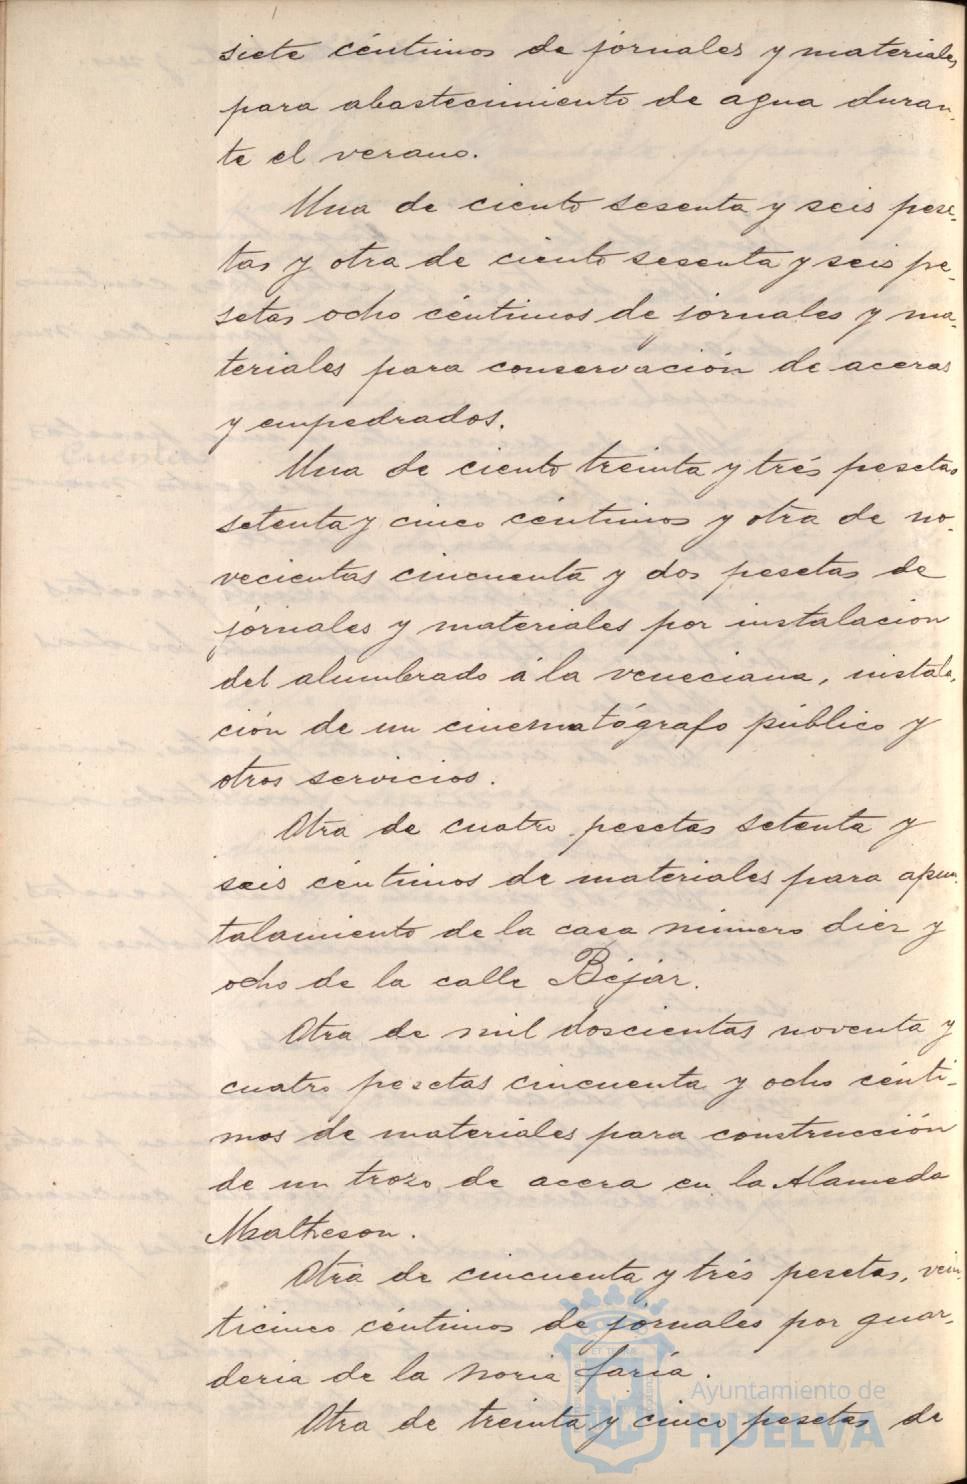 siete céntimos de jornales y materiales
para abastecimiento de agua duran-
te el verano.
Una de ciento sesenta y seis pese-
tas y otra de ciento sesenta y seis pe-
setas ocho céntimos de jornales y ma-
teriales para conservación de aceras
y empedrados.
Una de ciento treinta y trés pesetas
setenta y cinco céntimos y otra de no-
vecientas cincuenta y dos pesetas de
jornales y materiales por instalacion
del alumbrado á la veneciana, instala-
ción de un cinematógrafo público y
otros servicios.
Otra de cuatro pesetas setenta y
seis céntimos de materiales para apun-
talamiento de la casa número diez y
ocho de la calle Béjar.
Otra de mil doscientas noventa y
cuatro pesetas cincuenta y ocho cénti-
mos de materiales para construcción
de un trozo de acera en la Alameda
Matheson.
Otra de cincuenta y trés pesetas, vein-
ticinco céntimos de jornales por guar-
deria de la noria faría.
Otra de treinta y cinco pesetas de
Ayuntamiento de
HUELVA